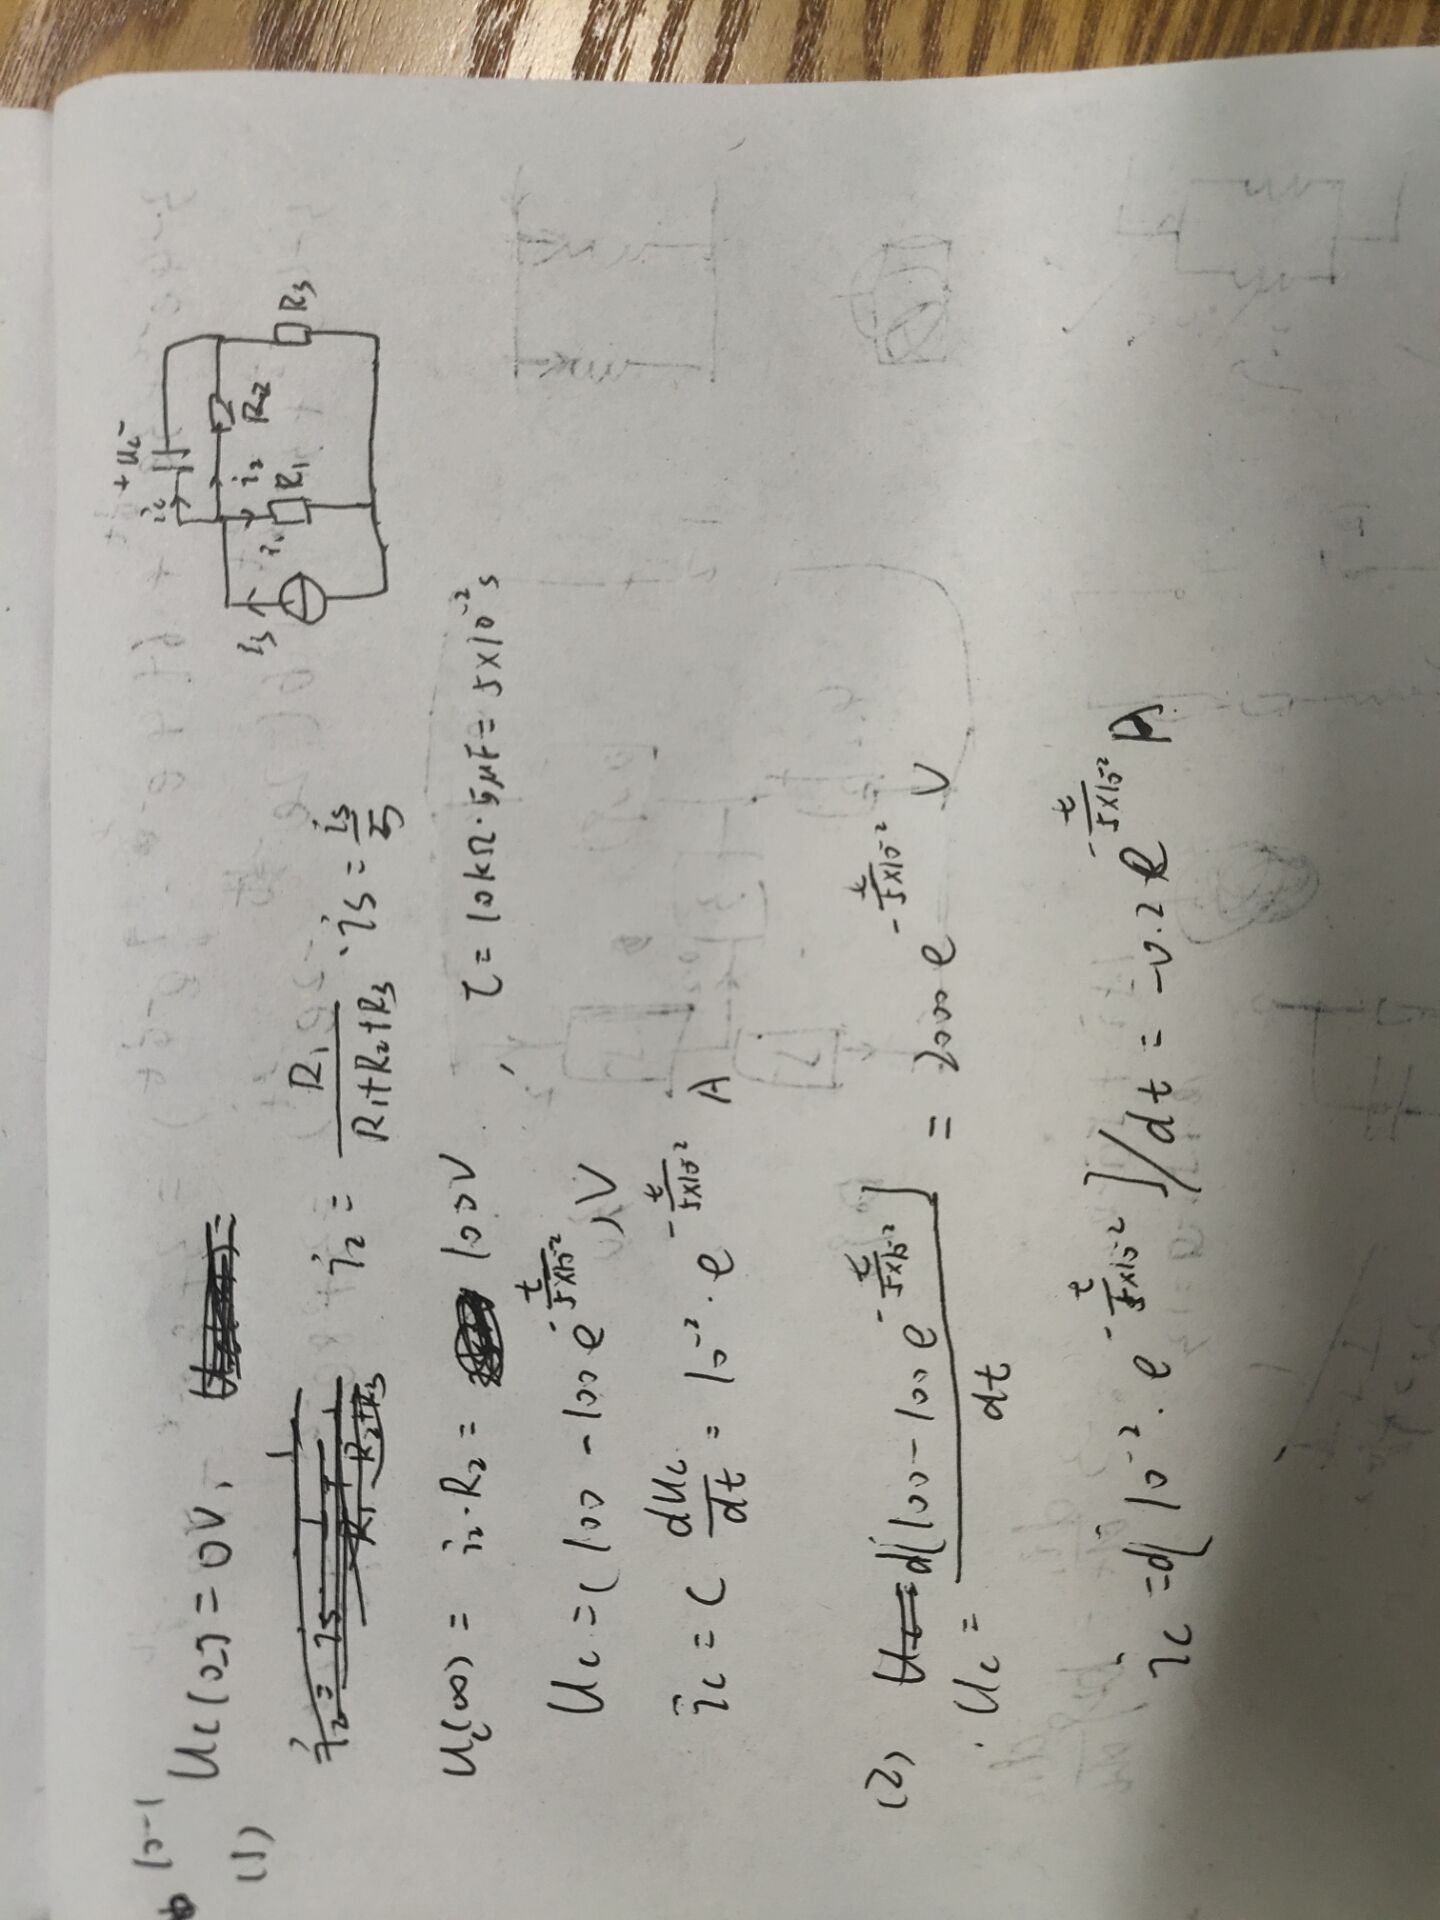 10-1
(1) Uc(0-) = 0V,
i₂ = \frac{R₁}{R₁+R₂+R₃} · is = \frac{is}{5}
Uc(∞) = i₂·R₂ = 100V τ = 10kΩ·5μF = 5×10⁻²s
Uc = (100 - 100e^{-\frac{t}{5×10⁻²}})V
ic = C \frac{dUc}{dt} = 10⁻²·e^{-\frac{t}{5×10⁻²}} A
(2) Uc = \frac{d[100-100e^{-\frac{t}{5×10⁻²}}]}{dt} = 2000e^{-\frac{t}{5×10⁻²}} V
ic = d[10⁻²·e^{-\frac{t}{5×10⁻²}}]/dt = -0.2e^{-\frac{t}{5×10⁻²}} A
+ Uc -
ic
is
i₁
R₁
i₂
R₂
R₃